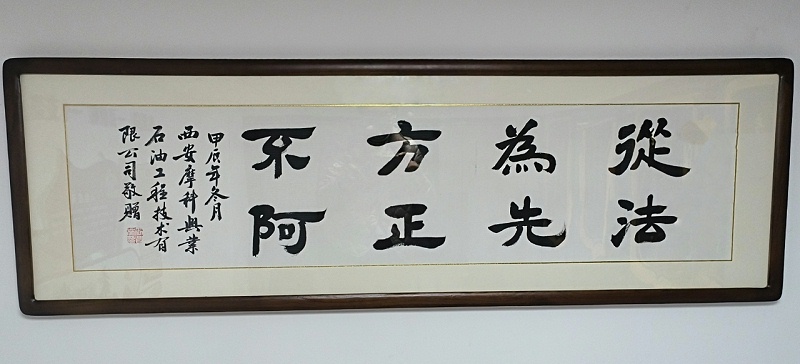 從法
為先
方正
不阿
甲辰年冬月
西安摩科興業
石油工程技术有
限公司敬贈